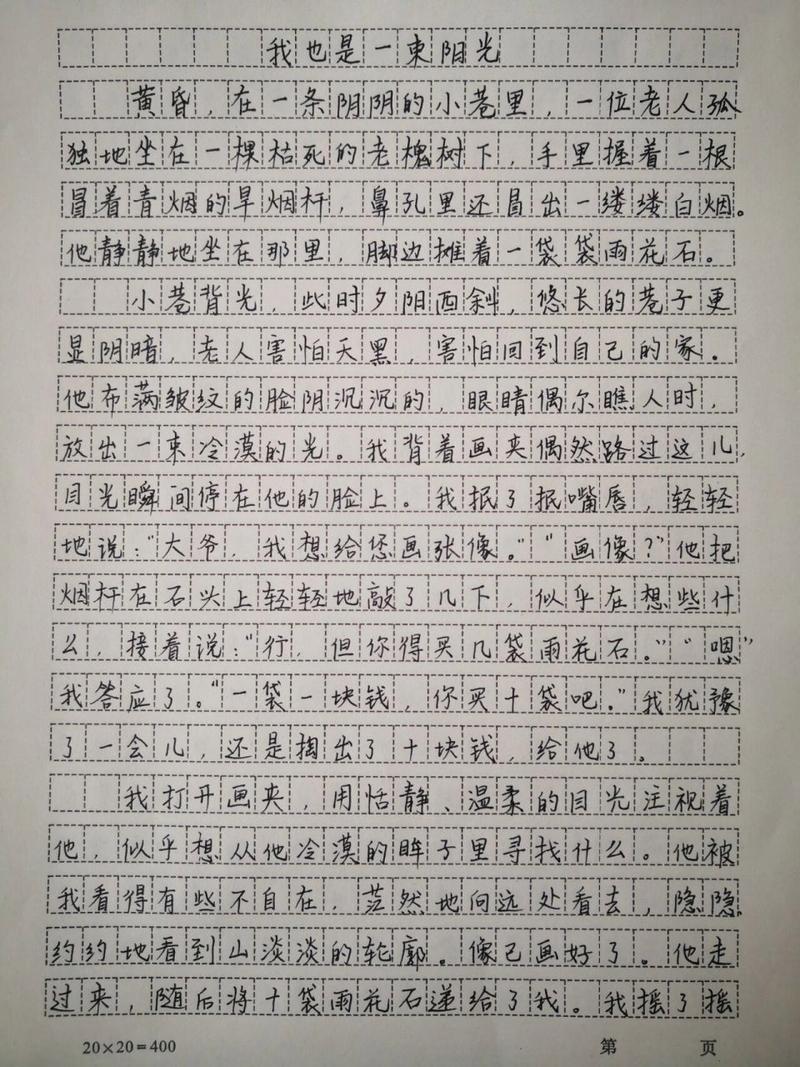 我也是一束阳光
黄昏，在一条阴阴的小巷里，一位老人孤
独地坐在一棵枯死的老槐树下，手里握着一根
冒着青烟的旱烟杆，鼻孔里还冒出一缕缕白烟。
他静静地坐在那里，脚边摊着一袋袋雨花石。
小巷背光，此时夕阳西斜，悠长的巷子更
显阴暗，老人害怕天黑，害怕回到自己的家。
他布满皱纹的脸阴沉沉的，眼睛偶尔瞧人时，
放出一束冷漠的光。我背着画夹偶然路过这儿，
目光瞬间停在他的脸上。我抿了抿嘴唇，轻轻
地说：“大爷，我想给您画张像。”“画像？”他把
烟杆在石头上轻轻地敲了几下，似乎在想些什
么，接着说：“行，但你得买几袋雨花石。”“嗯”
我答应了。“一袋一块钱，你买十袋吧。”我犹豫
了一会儿，还是掏出了十块钱，给他了。
我打开画夹，用恬静、温柔的目光注视着
他，似乎想从他冷漠的眸子里寻找什么。他被
我看得有些不自在，茫然地向远处看去，隐隐
约约地看到山淡淡的轮廓。像已画好了。他走
过来，随后将十袋雨花石递给了我。我摇了摇
20×20=400 第 页